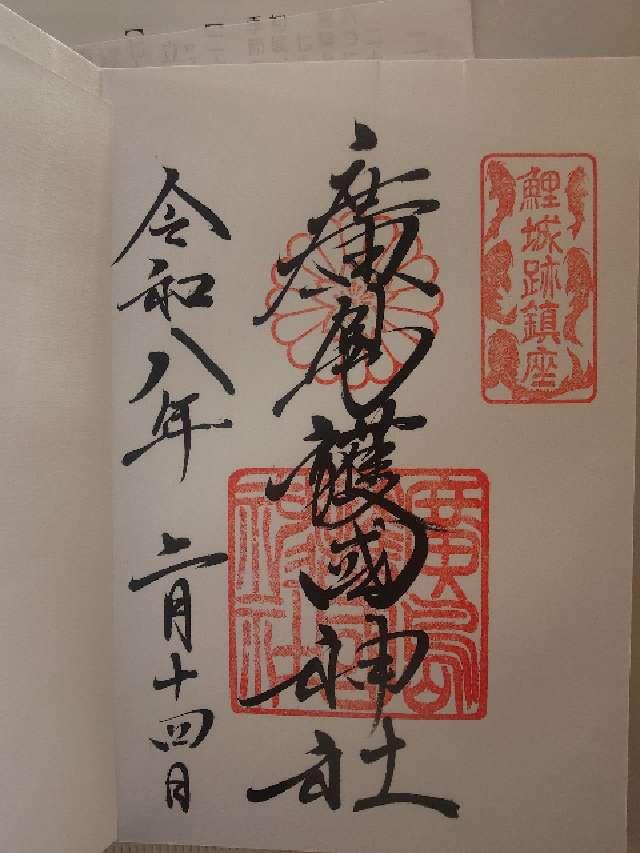 鯉城跡鎮座
廣島護國神社
廣島
護國
神社
令和八年二月十四日